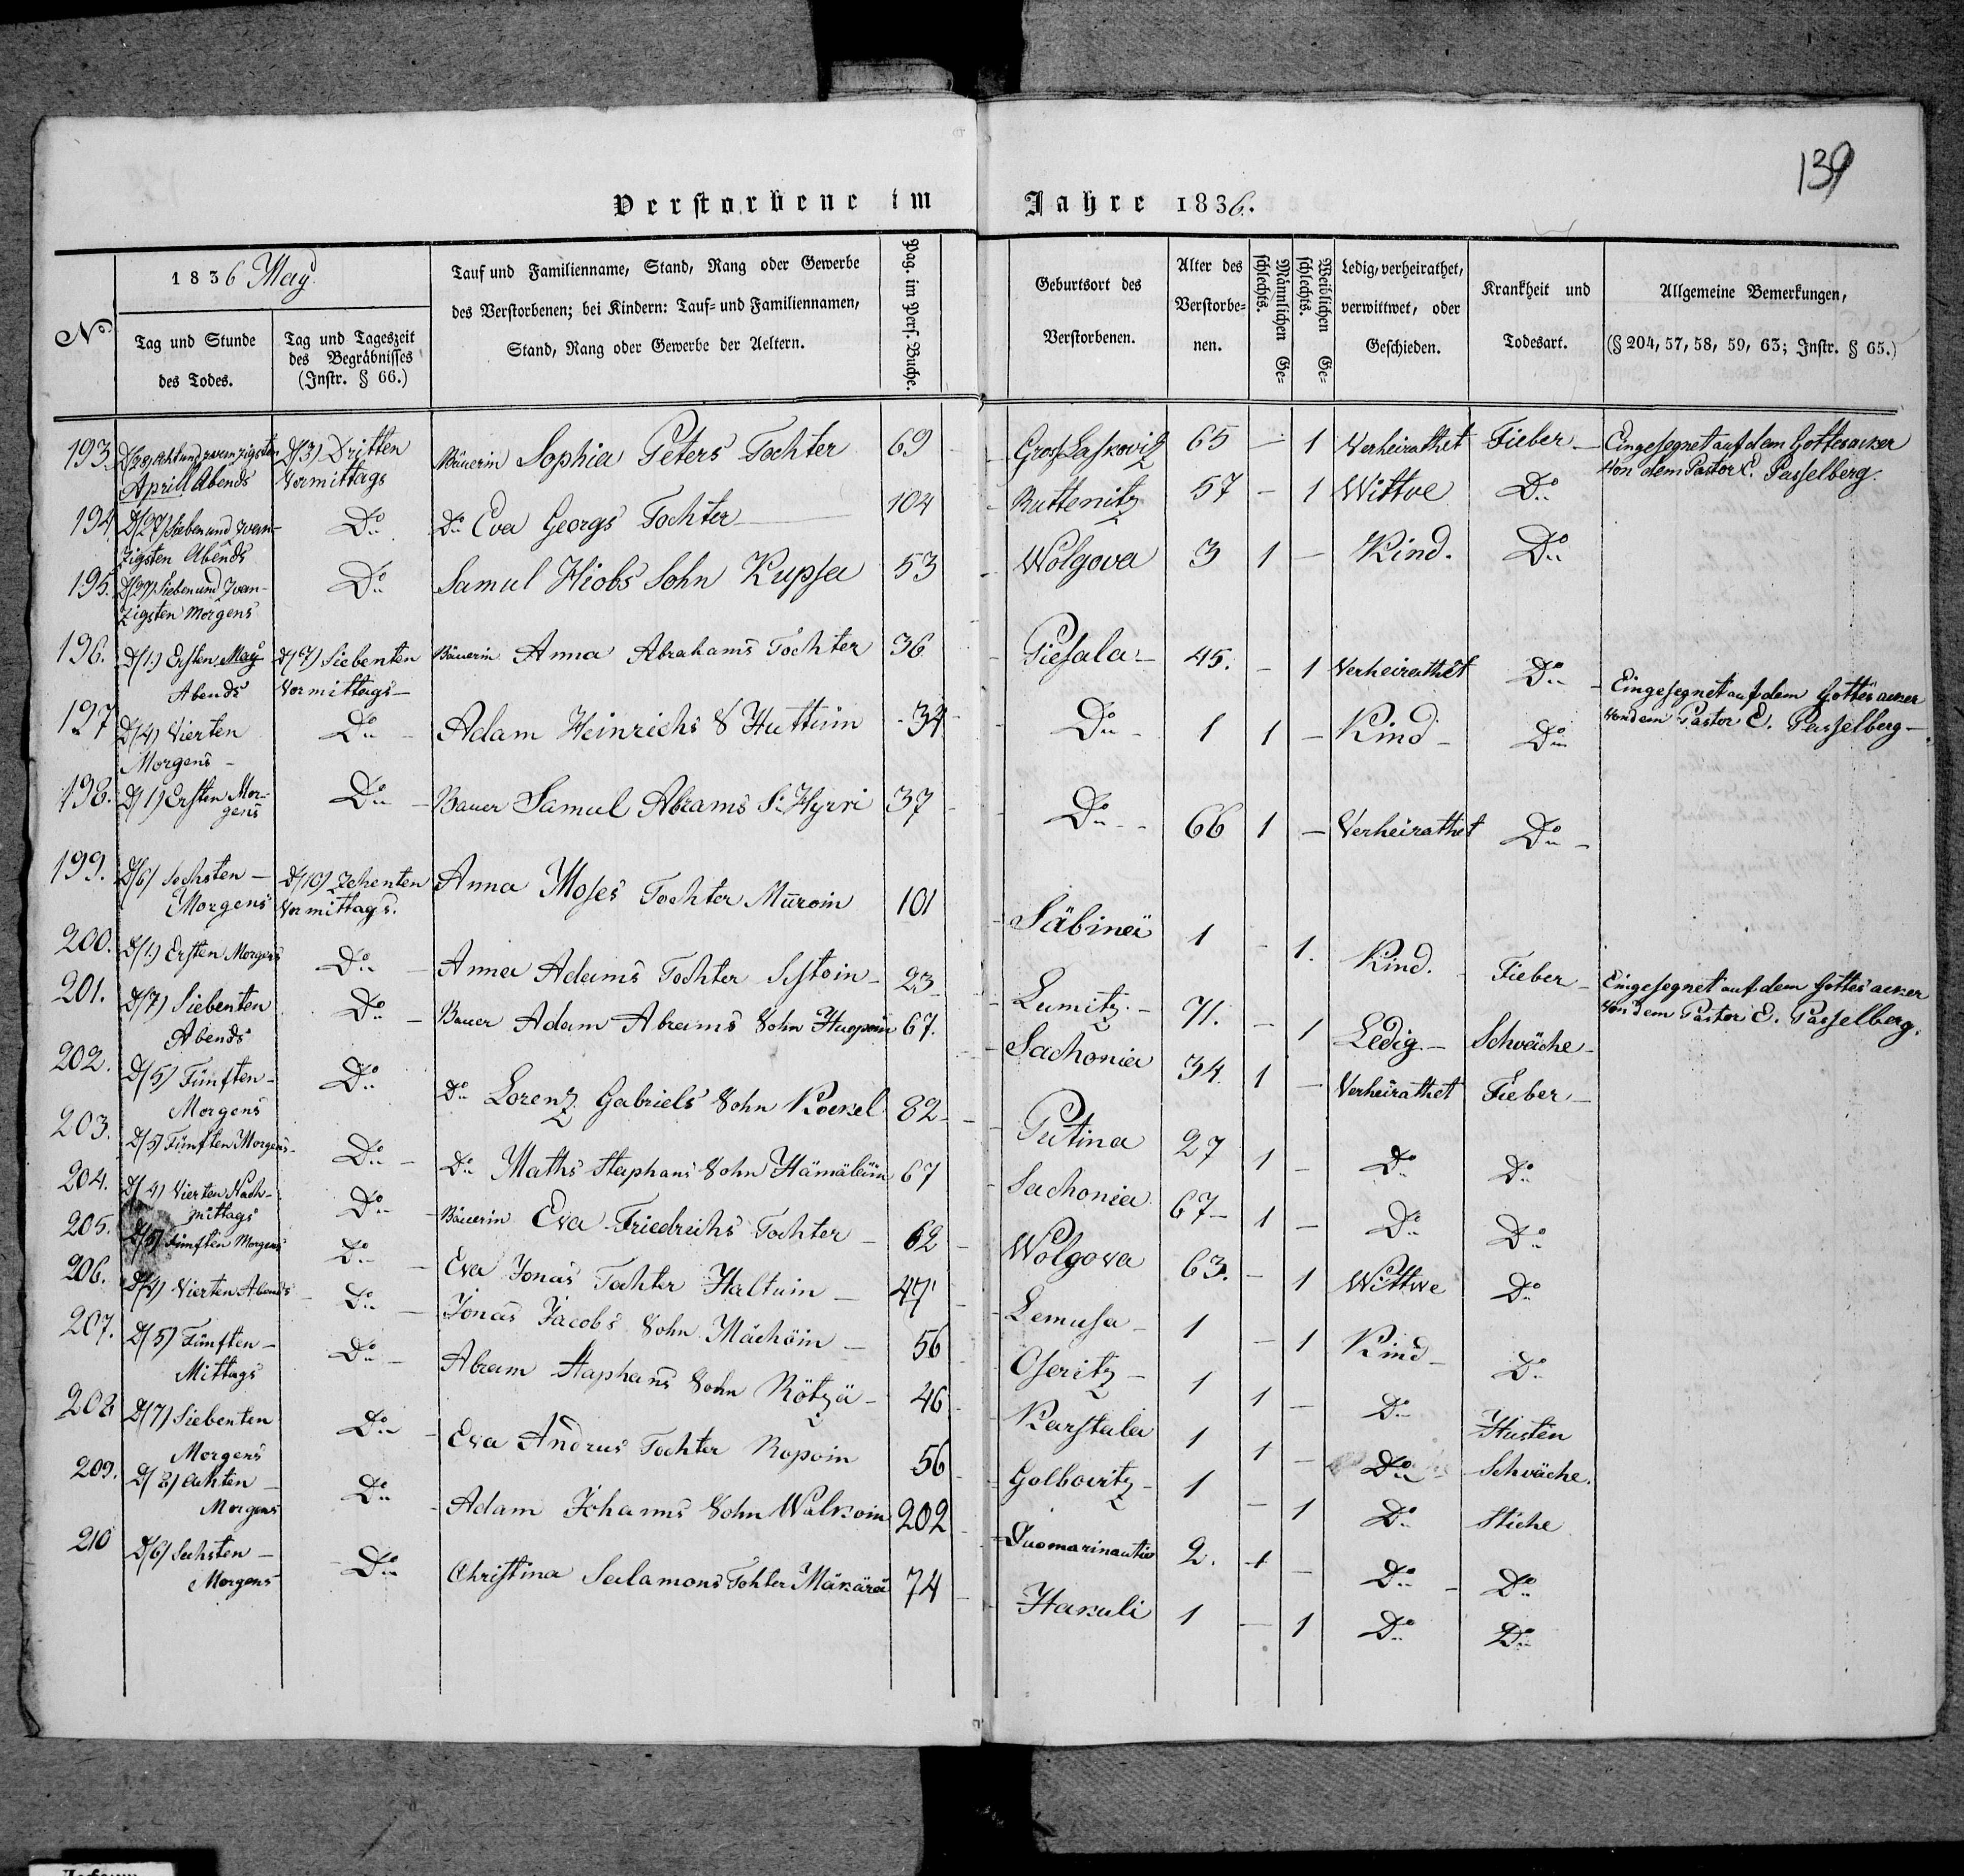 139
Verstorbene im Jahre 1836.
No
1836 May.
Tag und Stunde des Todes.
Tag und Tageszeit des Begräbnisses (Instr. § 66.)
Tauf und Familienname, Stand, Rang oder Gewerbe des Verstorbenen; bei Kindern: Tauf- und Familiennamen, Stand, Rang oder Gewerbe der Aeltern.
Pag. im Pers. Buche.
Geburtsort des Verstorbenen.
Alter des Verstorbe-nen.
Männlichen Ge-schlechts.
Weiblichen Ge-schlechts.
Ledig, verheirathet, verwittwet, oder Geschieden.
Krankheit und Todesart.
Allgemeine Bemerkungen, (§ 204, 57, 58, 59, 63; Instr. § 65.)
193. D/28/ Acht und zwanzigsten Aprill Abends D/3) Dritten Vormittags Bäuerin Sophia Peters Tochter 69 Gros Laskovitz 65 – 1 Verheirathet Fieber – Eingesegnet auf dem Gottesacker von dem Pastor E. Passelberg.
194. D/27) Sieben und zwan-zigsten Abends Do Do Eva Georgs Tochter 104 Ruttenitz 57 – 1 Wittwe Do
195. D/27) Sieben und Zwan-zigsten Morgens Do Samul Hiobs Sohn Kupsa 53 Wolgova 3 1 – Kind. Do
196. D/1.) Ersten May Abends D/7) Siebenten Vormittags – Bäuerin Anna Abrahams Tochter 36 Piesala – 45. – 1 Verheirathet Do – Eingesegnet auf dem Gottesacker von dem Pastor E. Passelberg –
197 D/4) Vierten Morgens – Do – Adam Heinrichs S Huttuin 34 Do – 1 1 – Kind – Do
198. D/1) Ersten Mor-gens Do – Bauer Samul Abrams S. Hyrri 37 Do 66 1 – Verheirathet Do –
199. D/6) Sechsten – Morgens D/10) Zehenten Vormittags. Anna Moses Tochter Muroin 101 Säbinei 1 – 1. Kind. Fieber – Eingesegnet auf dem Gottesacker von dem Pastor E. Passelberg.
200. D/1.) Ersten Morgens Do – Anna Adams Tochter 23 Lumitz – 71. – 1 Ledig – Schwäche –
201. D/7) Siebenten Abends Do – Bauer Adam Abrams Sohn 67. Sachonia 34. 1 – Verheirathet Fieber –
202. D/5) Fünften – Morgens Do Do Lorenz Gabriels Sohn 82 – Putina 27 1 – Do Do
203. D/5) Fünften Morgens – Do – Do Maths Staphans Sohn Hämäläin 67 Sachonia 67 – 1 – Do Do
204. D/4) Vierten Nach-mittags Do – Bäuerin Eva Friedrichs Tochter – 62 – Wolgova 63. – 1 Wittwe Do
205. D/5) Fünften Morgens Do – Eva Jonas Tochter Haltuin – 47 Lemusa – 1 – 1 Kind – Do
206. D/4) Vierten Abends – Do – Jonas Jacobs Sohn Mächöin – 56 Oseritz – 1 1 – Do Husten
207. D/5) Fünften – Mittags Do – Abram Staphans Sohn Rötzä – 46 Karstala 1 1 – Do Schwäche.
208 D/7) Siebenten Morgens Do – Eva Andrus Tochter Ropoin 56 Golbovitz – 1 – 1 Do Stiche
209. D/8) Achten – Morgens Do Adam Johanns Sohn Walkoin 202 Suomarinautio 2. 1 – Do – Do
210 D/6) Sechsten – Morgens Do Christina Salamons Tohter Mäkärä 74 – Hakuli 1 – 1 Do Do